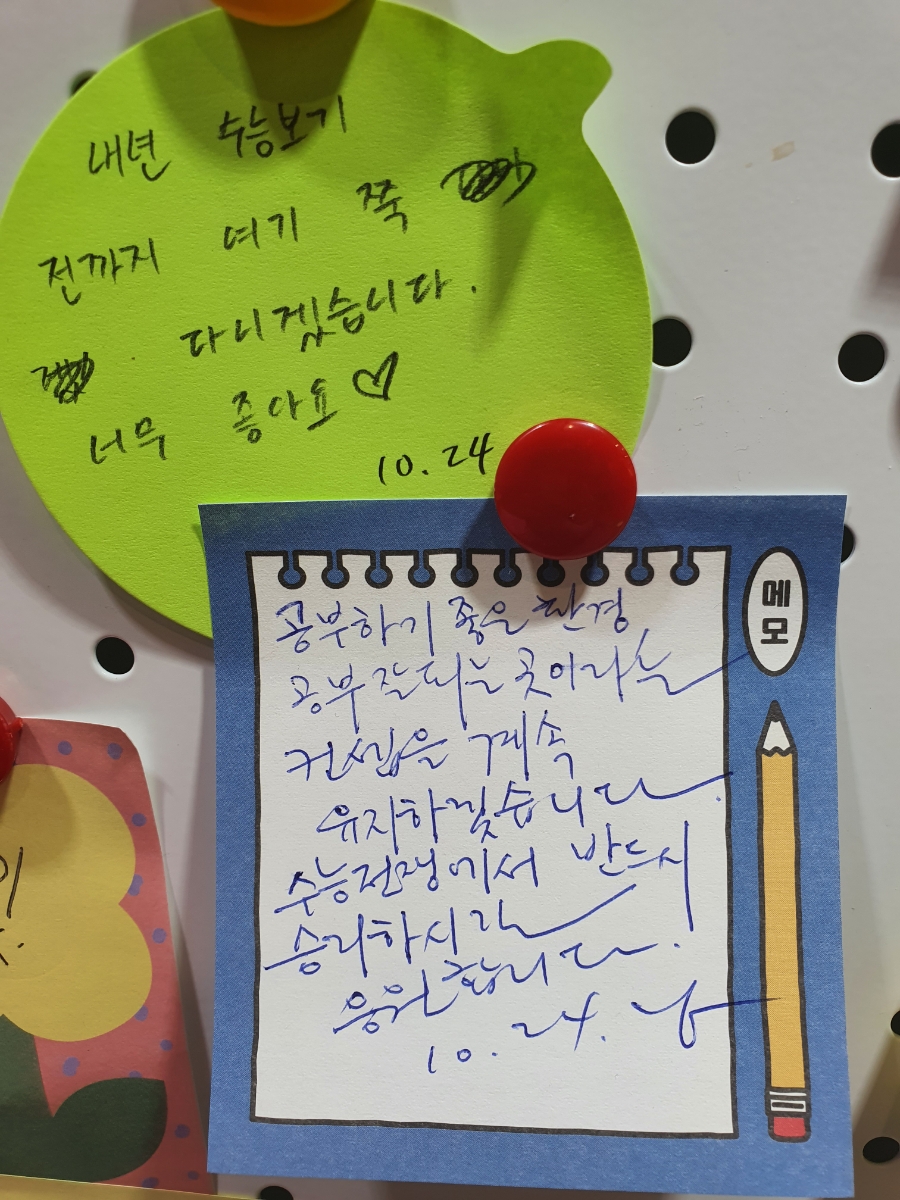 내년 수능보기
전까지 여기 쭉
다니겠습니다.
너무 좋아요♡
10.24
메
모
공부하기 좋은 환경
공부 잘되는 곳이라는
컨셉은 계속
유지하겠습니다.
수능전쟁에서 반드시
승리하시라
응원합니다.
10. 24.